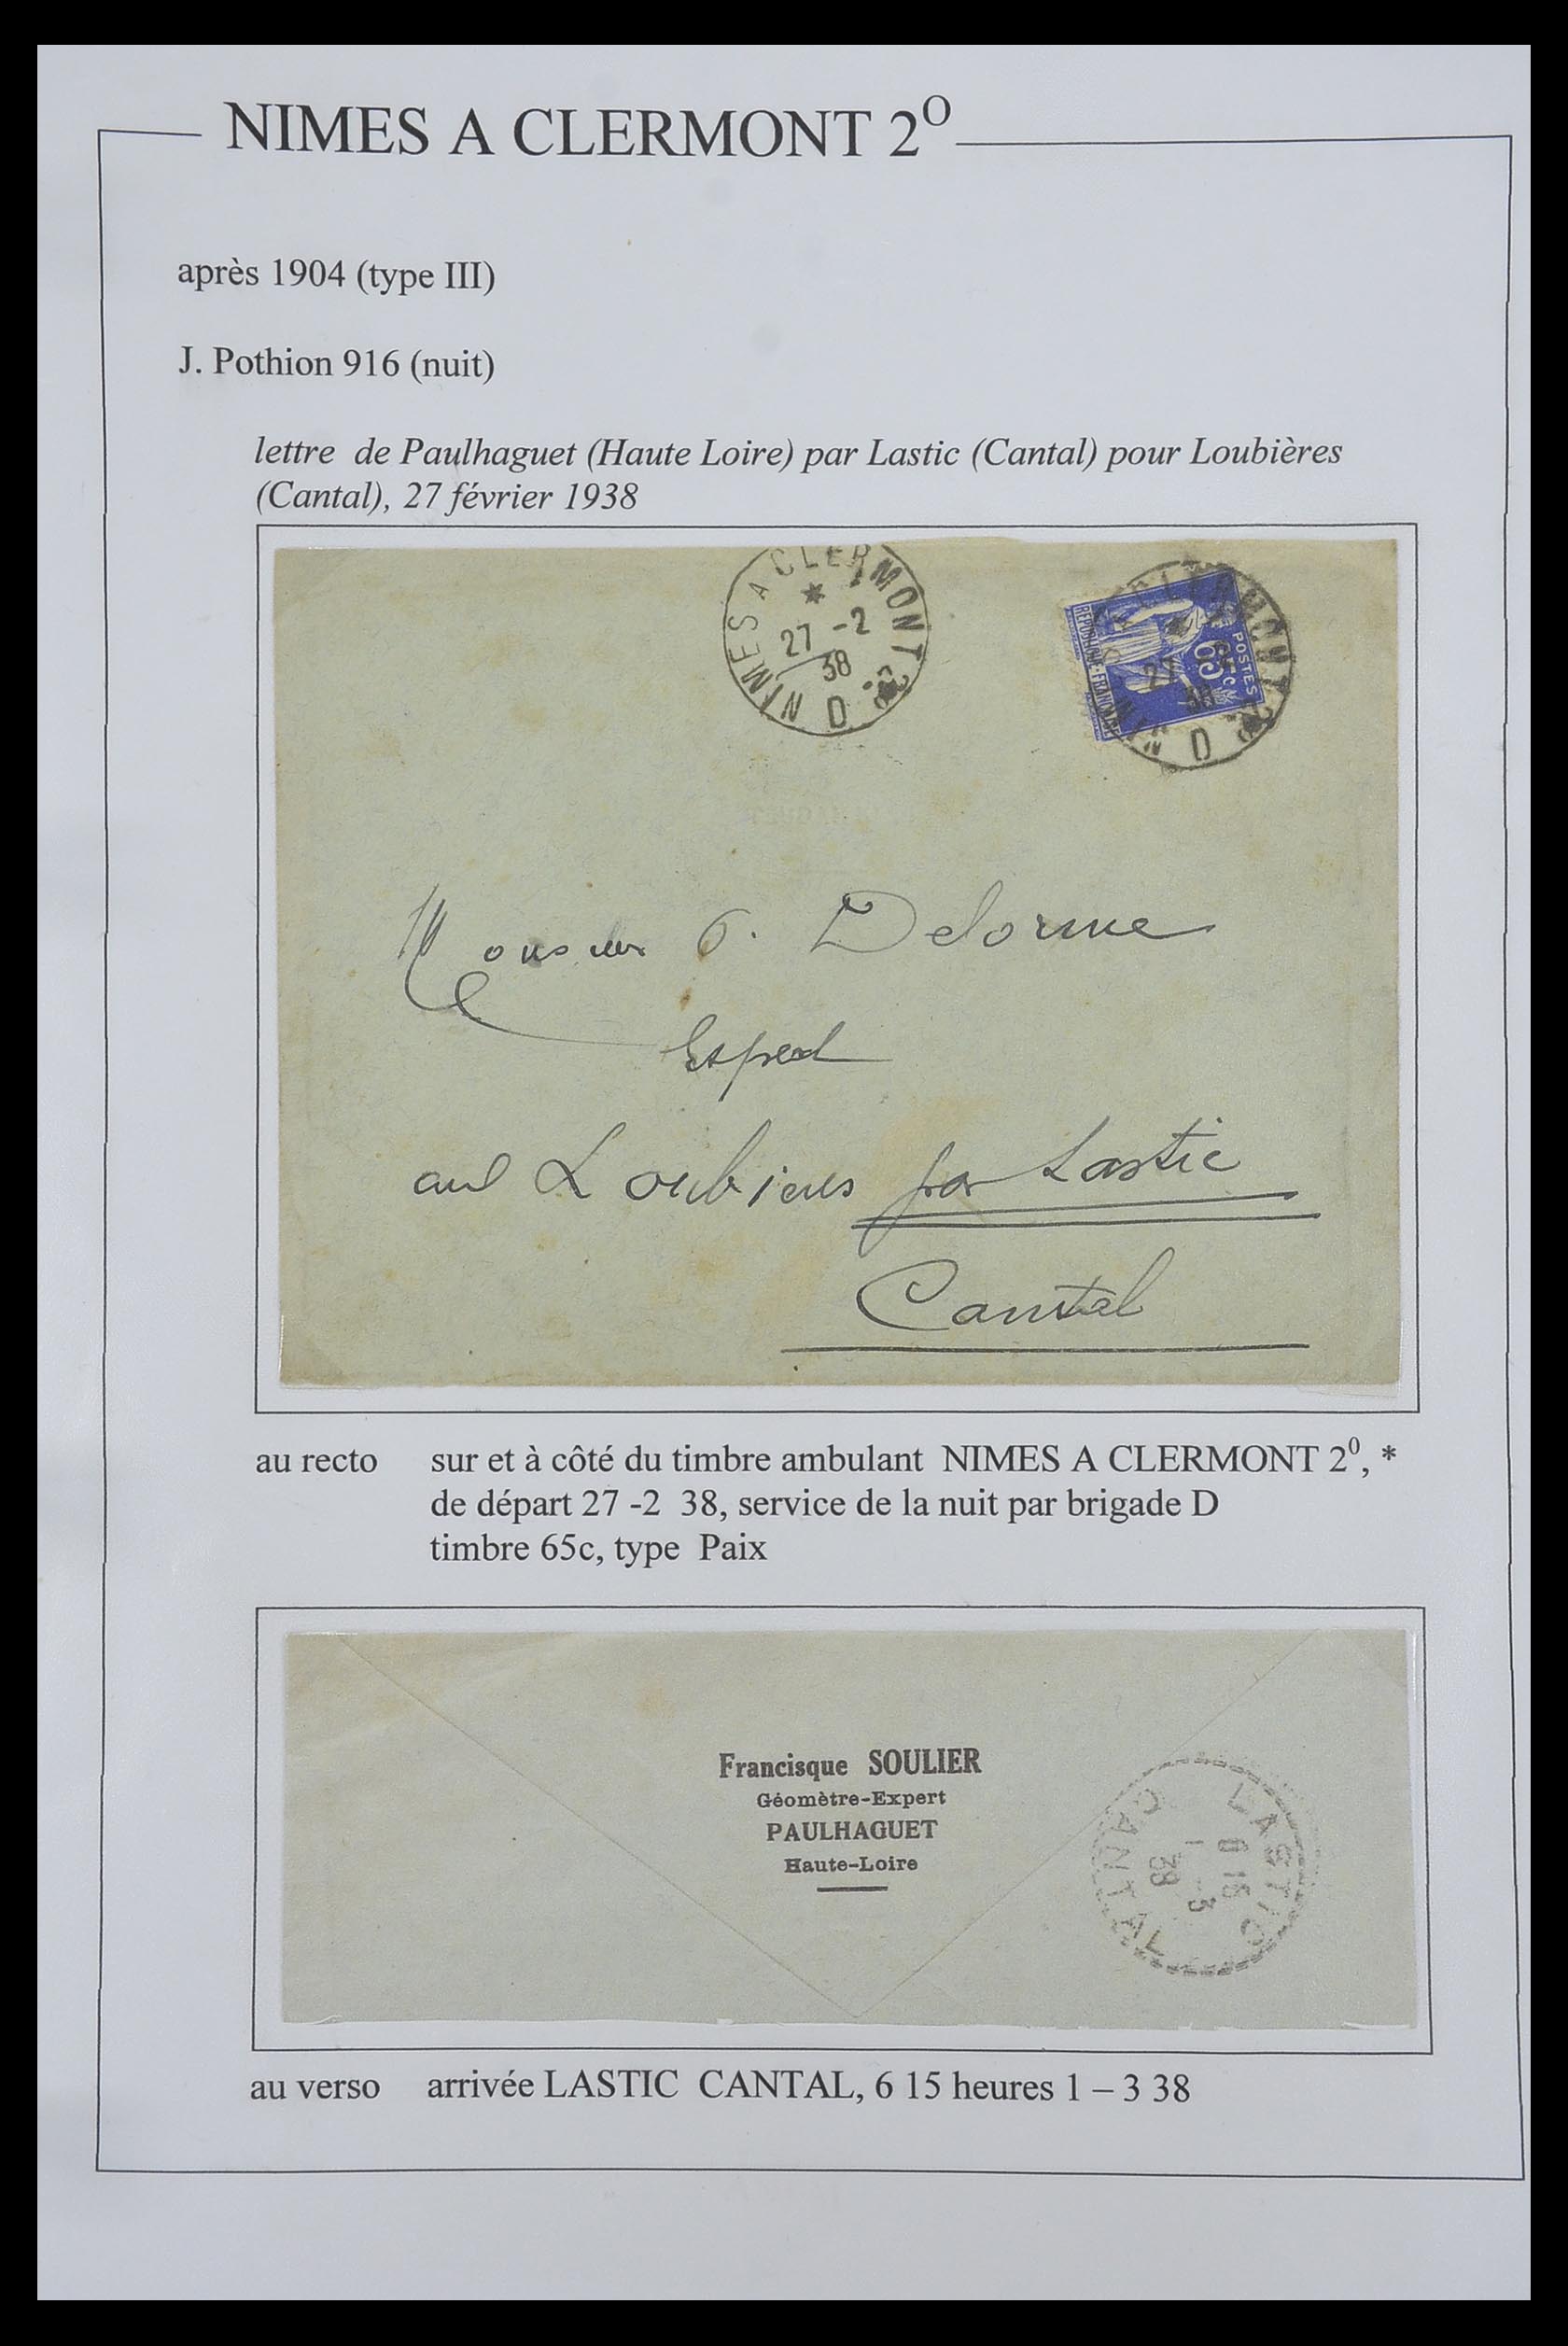 NIMES A CLERMONT 2O
après 1904 (type III)
J. Pothion 916 (nuit)
lettre de Paulhaguet (Haute Loire) par Lastic (Cantal) pour Loubières
(Cantal), 27 février 1938
NIMES A CLERMONT 2°
*
27 -2
38
D
NIMES A CLERMONT 2°
27
38
D
POSTES
65c
REPUBLIQUE-FRANCAISE
Monsieur Delorme
aux Loubieres par Lastic
Cantal
au recto sur et à côté du timbre ambulant NIMES A CLERMONT 2⁰, *
de départ 27 -2 38, service de la nuit par brigade D
timbre 65c, type Paix
Francisque SOULIER
Géomètre-Expert
PAULHAGUET
Haute-Loire
LASTIC
6 15
1 -3
38
CANTAL
au verso arrivée LASTIC CANTAL, 6 15 heures 1 – 3 38